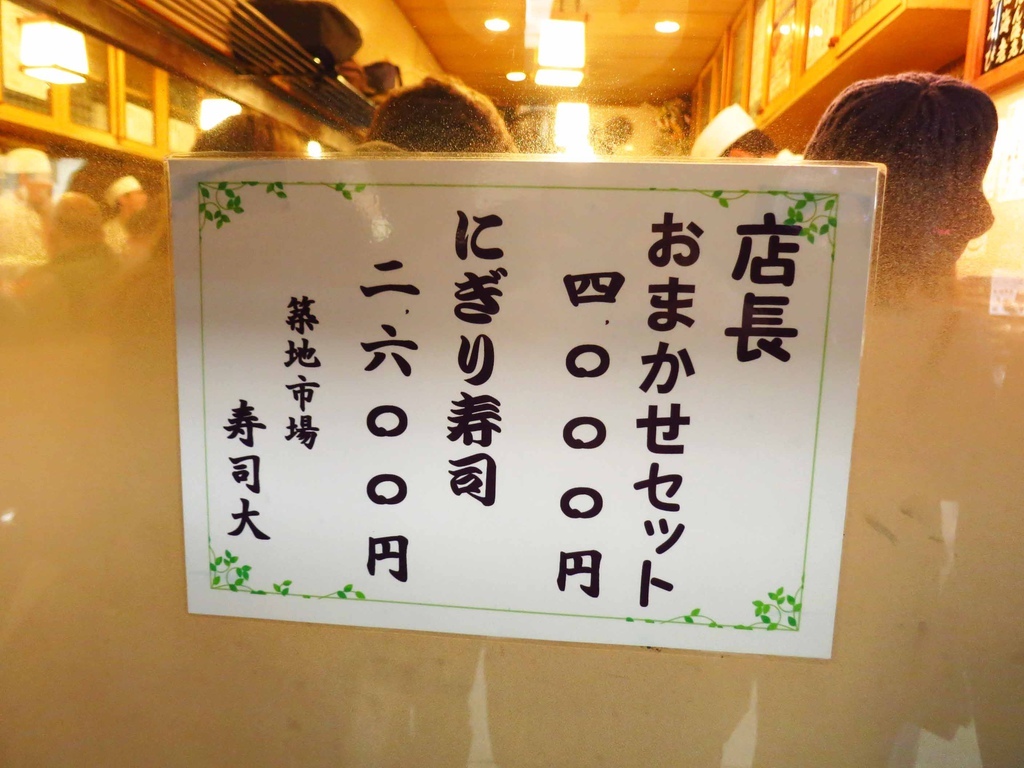 店長
おまかせセット
四,〇〇〇円
にぎり寿司
二,六〇〇円
築地市場
寿司大